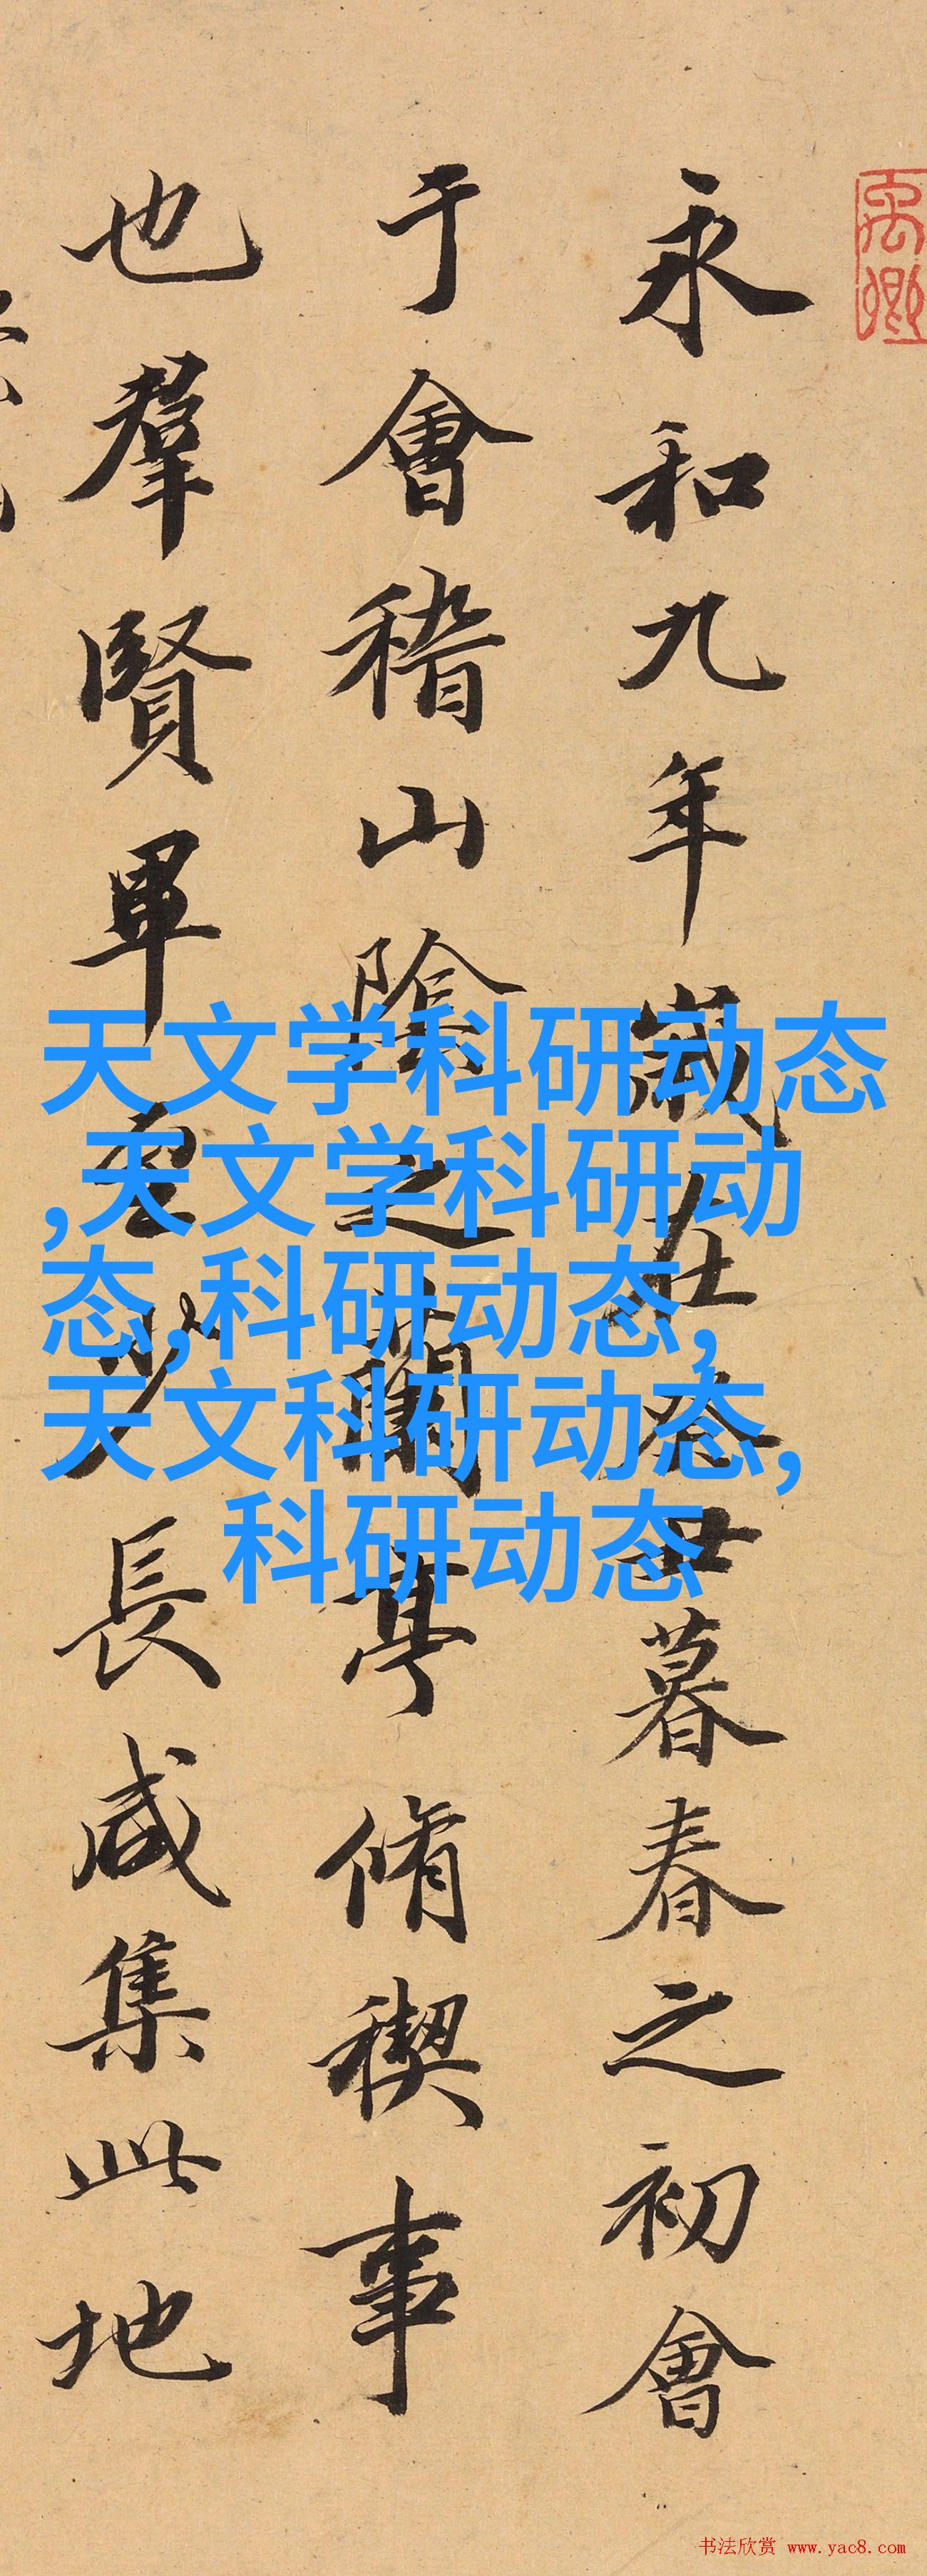 永和九年歲在癸丑暮春之初會
于會稽山陰之蘭亭脩稧事
也羣賢畢至少長咸集此地
天文学科研动态
,天文学科研动
态,科研动态,
天文科研动态,
科研动态
书法欣赏 www.yac8.com